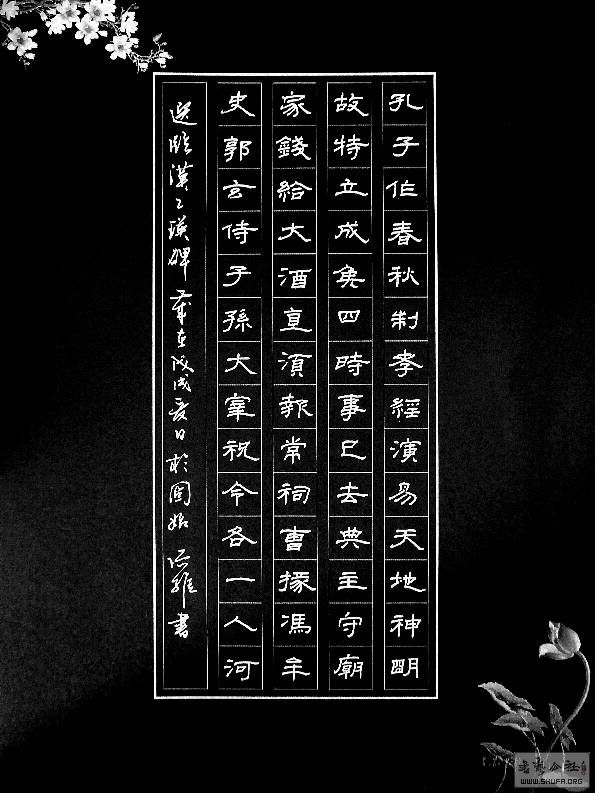 孔子作春秋制孝經演易天地神明
故特立成矦四時事已去典主守廟
家錢給大酒直須報常祠曹掾馮牟
史郭玄侍子孫大宰祝令各一人河
選臨漢乙瑛碑 歲在戊戌夏日於固始 維書
WWW.SHUFA.ORG